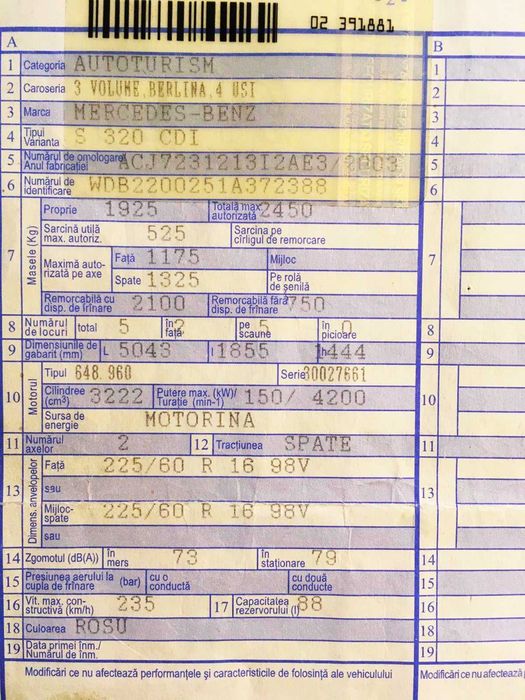 02 391881
A B
1 Categoria AUTOTURISM 1
2 Caroseria 3 VOLUME,BERLINA,4 USI 2
3 Marca MERCEDES-BENZ 3
4 Tipul
Varianta S 320 CDI 4
5 Numărul de omologare
Anul fabricației ACJ7231213I2AE3/2003 5
6 Numărul de
identificare WDB2200251A372388 6
7 Masele (Kg) 7
Proprie 1925 Totală max.
autorizată 2450
Sarcină utilă
max. autoriz. 525 Sarcina pe
cîrligul de remorcare
Maximă auto-
rizată pe axe Față 1175 Mijloc
Spate 1325 Pe rolă
de șenilă
Remorcabilă cu
disp. de frînare 2100 Remorcabilă fără
disp. de frînare 750
8 Numărul
de locuri total 5 în
față 2 pe
scaune 5 în
picioare 0 8
9 Dimensiunile de
gabarit (mm) L 5043 l 1855 h 1444 9
10 Motorul 10
Tipul 648.960 Serie 30027661
Cilindree
(cm³) 3222 Putere max. (kW)/
Turație (min-1) 150/ 4200
Sursa de
energie MOTORINA
11 Numărul
axelor 2 12 Tracțiunea SPATE 11
13 Dimens. anvelopelor 13
Față 225/60 R 16 98V
sau
Mijloc-
spate 225/60 R 16 98V
sau
14 Zgomotul (dB(A)) în
mers 73 în
staționare 79 14
15 Presiunea aerului la
cupla de frînare (bar) cu o
conductă cu două
conducte 15
16 Vit. max. con-
structivă (km/h) 235 17 Capacitatea
rezervorului (l) 88 16
18 Culoarea ROSU 18
19 Data primei înm./
Numărul de înm. 19
Modificări ce nu afectează performanțele și caracteristicile de folosință ale vehiculului Modificări ce nu afectează